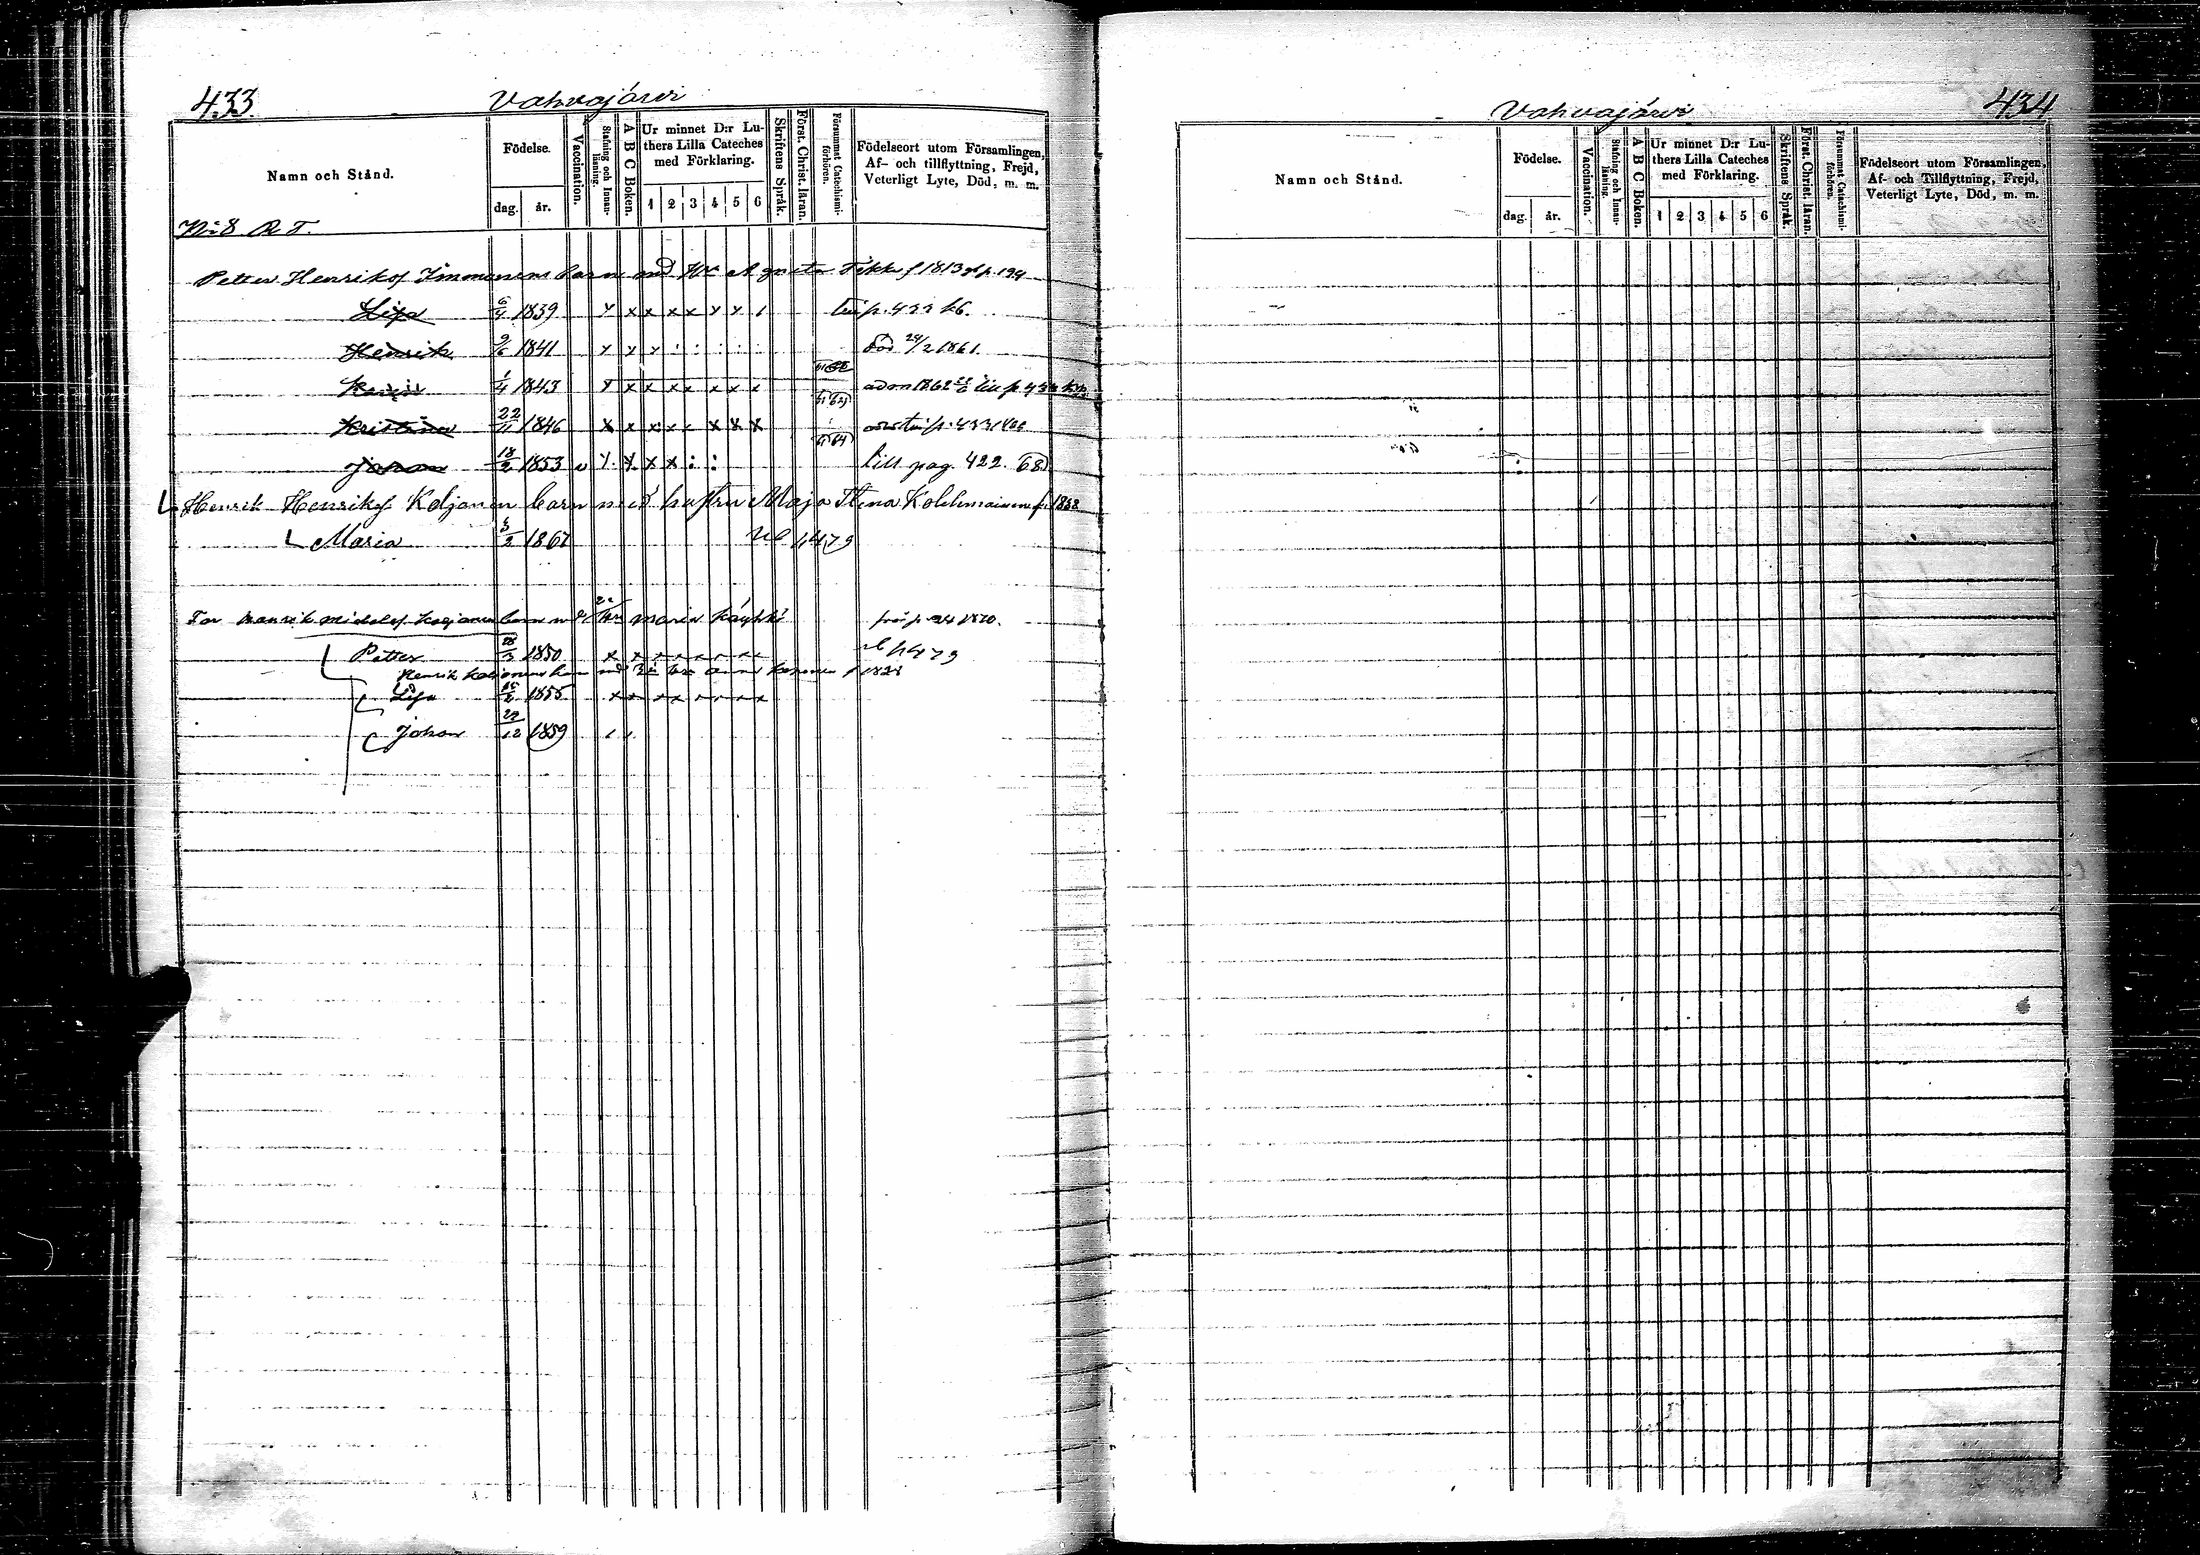 433. Vahvajärvi
Namn och Stånd.
Födelse.
dag. år.
Vaccination.
Stafning och Innanläsning.
A B C Boken.
Ur minnet D:r Luthers Lilla Cateches med Förklaring.
1 2 3 4 5 6
Skriftens Språk.
Först. Christ. läran.
Försummat Catechismiförhören.
Födelseort utom Församlingen,
Af- och tillflyttning, Frejd,
Veterligt Lyte, Död, m. m.
N:8 R T.
Petter Henrikss Immonens barn med Agneta f 1813 p. 194
Lisa 6/4 1839 x x x x x x p. 433
Henrik 9/6 1841 död 24/2 1861
1/4 1843 x x x x x x x 1862
Kristina 22/11 1846 x x x x x x x p. 433
Johan 18/2 1853 v x x x x : : till pag. 422. 68
Henrik Henrikss Koljonen barn med hustru Maja Stena Kolehmainen f. 1838
Maria 5/2 1867 p 479
Henrik Koljonen barn med 2:a hu Maria Käyhkö från p. 1870.
Petter 28/3 1850 x x x x x x x p 479
Henrik Koljonens barn med 3:e hu Anna f 1828
Lisa 15/2 1855 x x x x x x x x
Johan 29/12 1859
Vahvajärvi 434
Namn och Stånd.
Födelse.
dag. år.
Vaccination.
Stafning och Innanläsning.
A B C Boken.
Ur minnet D:r Luthers Lilla Cateches med Förklaring.
1 2 3 4 5 6
Skriftens Språk.
Först. Christ. läran.
Försummat Catechismiförhören.
Födelseort utom Församlingen,
Af- och Tillflyttning, Frejd,
Veterligt Lyte, Död, m. m.